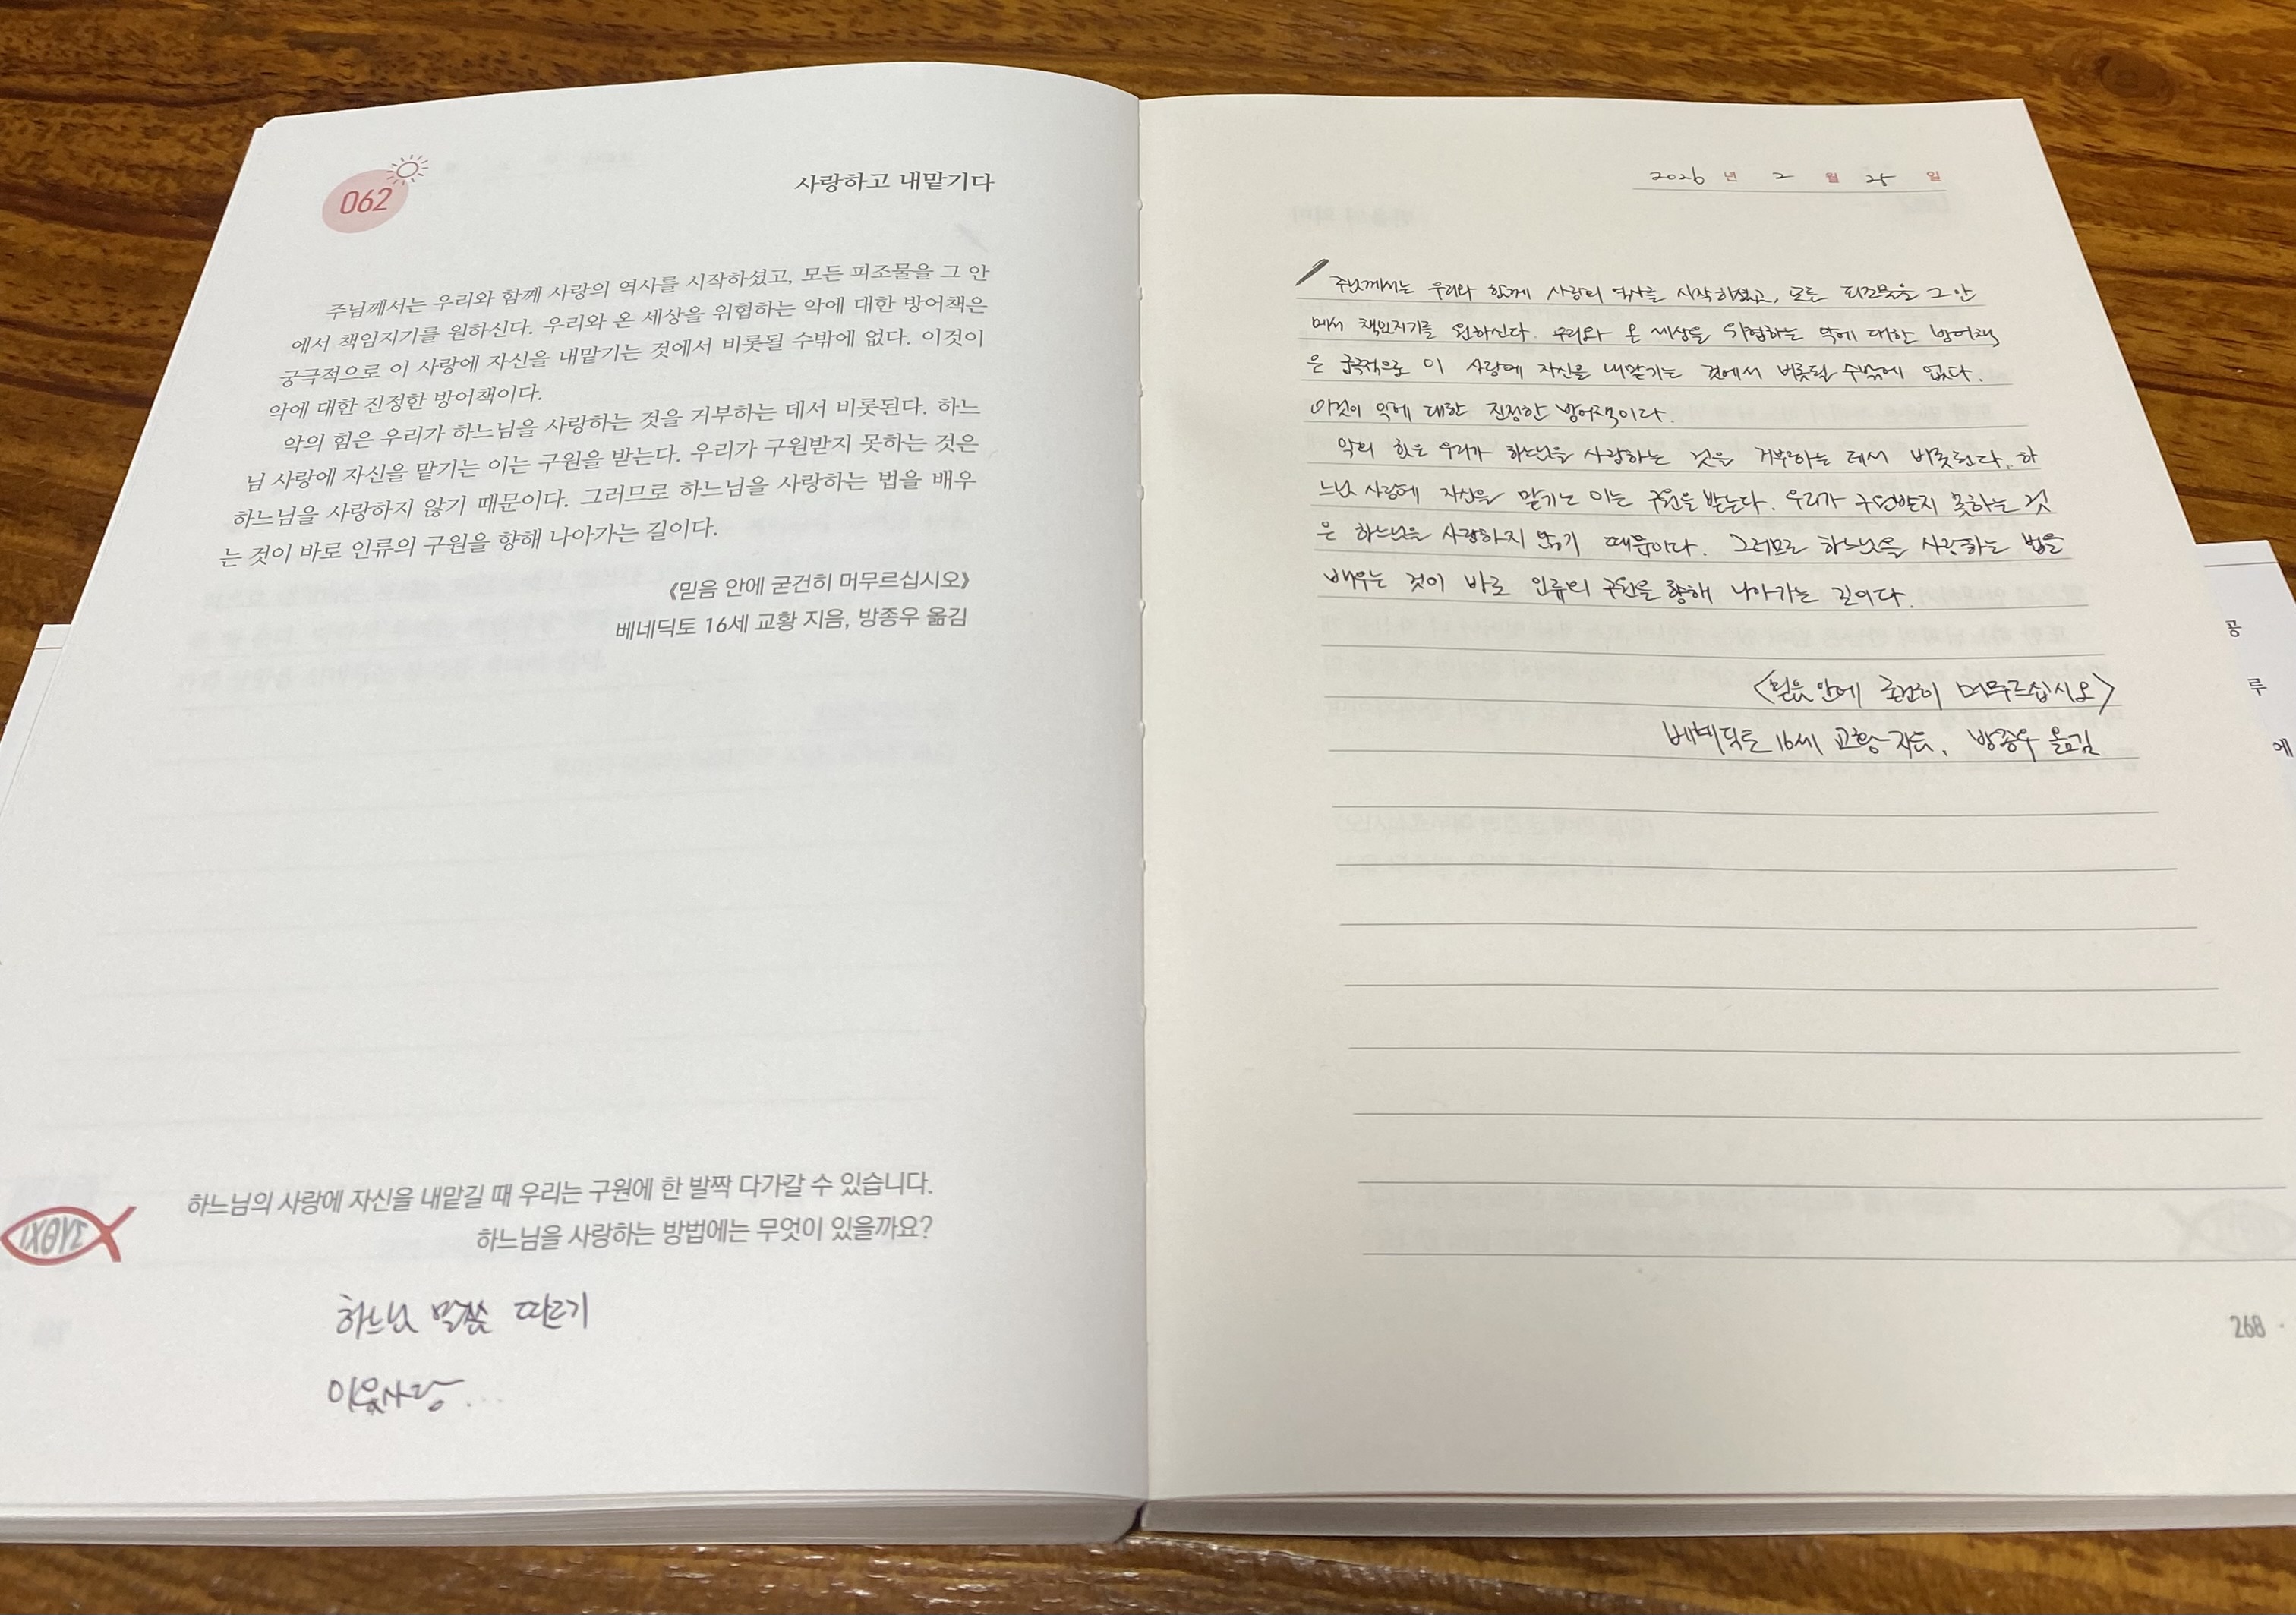 062
사랑하고 내맡기다
주님께서는 우리와 함께 사랑의 역사를 시작하셨고, 모든 피조물을 그 안
에서 책임지기를 원하신다. 우리와 온 세상을 위협하는 악에 대한 방어책은
궁극적으로 이 사랑에 자신을 내맡기는 것에서 비롯될 수밖에 없다. 이것이
악에 대한 진정한 방어책이다.
악의 힘은 우리가 하느님을 사랑하는 것을 거부하는 데서 비롯된다. 하느
님 사랑에 자신을 맡기는 이는 구원을 받는다. 우리가 구원받지 못하는 것은
하느님을 사랑하지 않기 때문이다. 그러므로 하느님을 사랑하는 법을 배우
는 것이 바로 인류의 구원을 향해 나아가는 길이다.
《믿음 안에 굳건히 머무르십시오》
베네딕토 16세 교황 지음, 방종우 옮김
하느님의 사랑에 자신을 내맡길 때 우리는 구원에 한 발짝 다가갈 수 있습니다.
하느님을 사랑하는 방법에는 무엇이 있을까요?
ΙΧΘΥΣ
하느님 말씀 따르기
이웃사랑...
2026 년 2 월 25 일
주님께서는 우리와 함께 사랑의 역사를 시작하셨고, 모든 피조물을 그 안
에서 책임지기를 원하신다. 우리와 온 세상을 위협하는 악에 대한 방어책
은 궁극적으로 이 사랑에 자신을 내맡기는 것에서 비롯될 수밖에 없다.
이것이 악에 대한 진정한 방어책이다.
악의 힘은 우리가 하느님을 사랑하는 것을 거부하는 데서 비롯된다. 하
느님 사랑에 자신을 맡기는 이는 구원을 받는다. 우리가 구원받지 못하는 것
은 하느님을 사랑하지 않기 때문이다. 그러므로 하느님을 사랑하는 법을
배우는 것이 바로 인류의 구원을 향해 나아가는 길이다.
<믿음 안에 굳건히 머무르십시오>
베네딕토 16세 교황 지음, 방종우 옮김
268
공
루
에